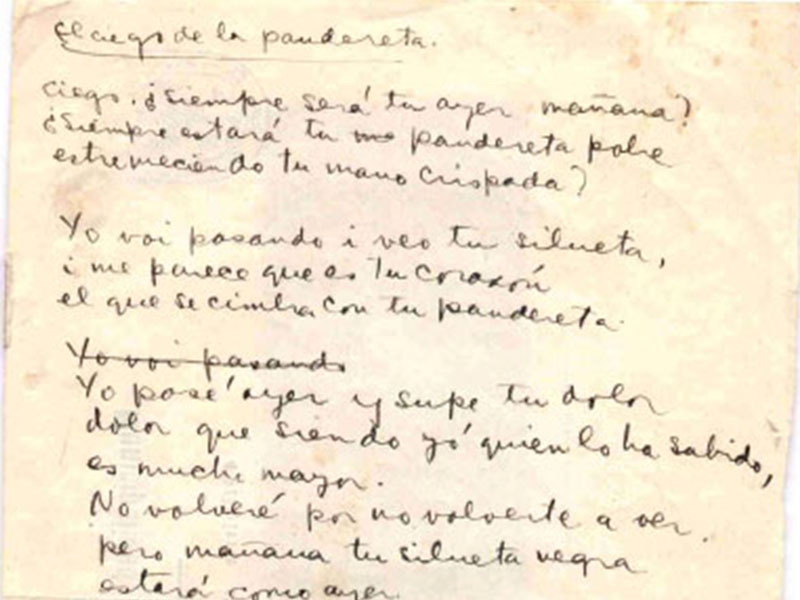 El ciego de la pandereta.
Ciego. ¿Siempre será tu ayer mañana?
¿Siempre estará tu pandereta pobre
estremeciendo tu mano crispada?
Yo voi pasando i veo tu silueta,
i me parece que es tu corazón
el que se cimbra con tu pandereta.
Yo voi pasando
Yo pasé ayer y supe tu dolor
dolor que siendo yó quien lo ha sabido,
es mucho mayor.
No volveré por no volverte a ver.
pero mañana tu silueta negra
estará como ayer.